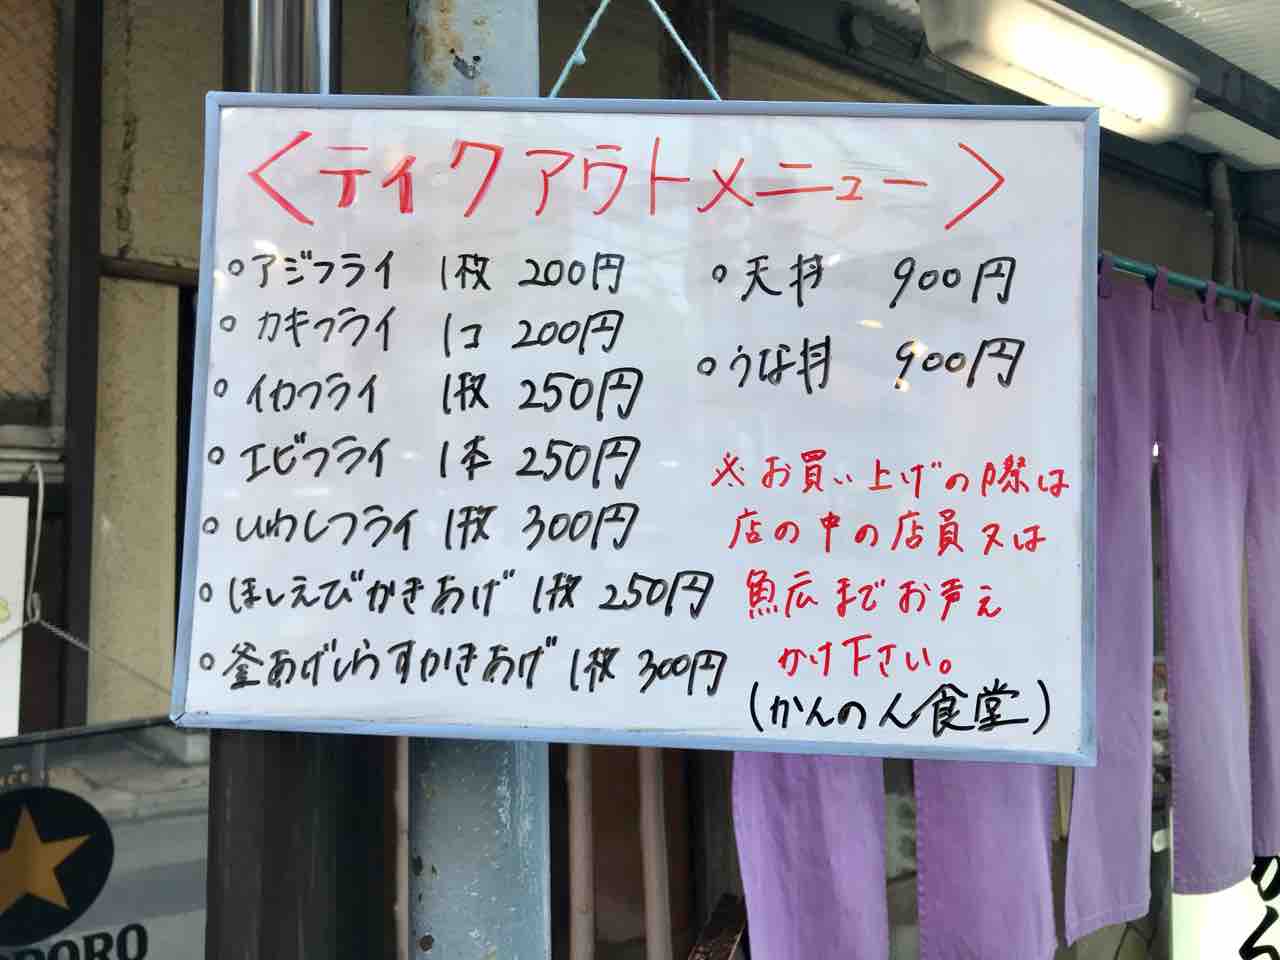 ＜テイクアウトメニュー＞
○アジフライ 1枚 200円
○カキフライ 1コ 200円
○イカフライ 1枚 250円
○エビフライ 1本 250円
○いわしフライ 1枚 300円
○ほしえびかきあげ 1枚 250円
○釜あげしらすかきあげ 1枚 300円
○天丼 900円
○うな丼 900円
※お買い上げの際は
店の中の店員又は
魚広までお声え
かけ下さい。
(かんのん食堂)
PORO
かん